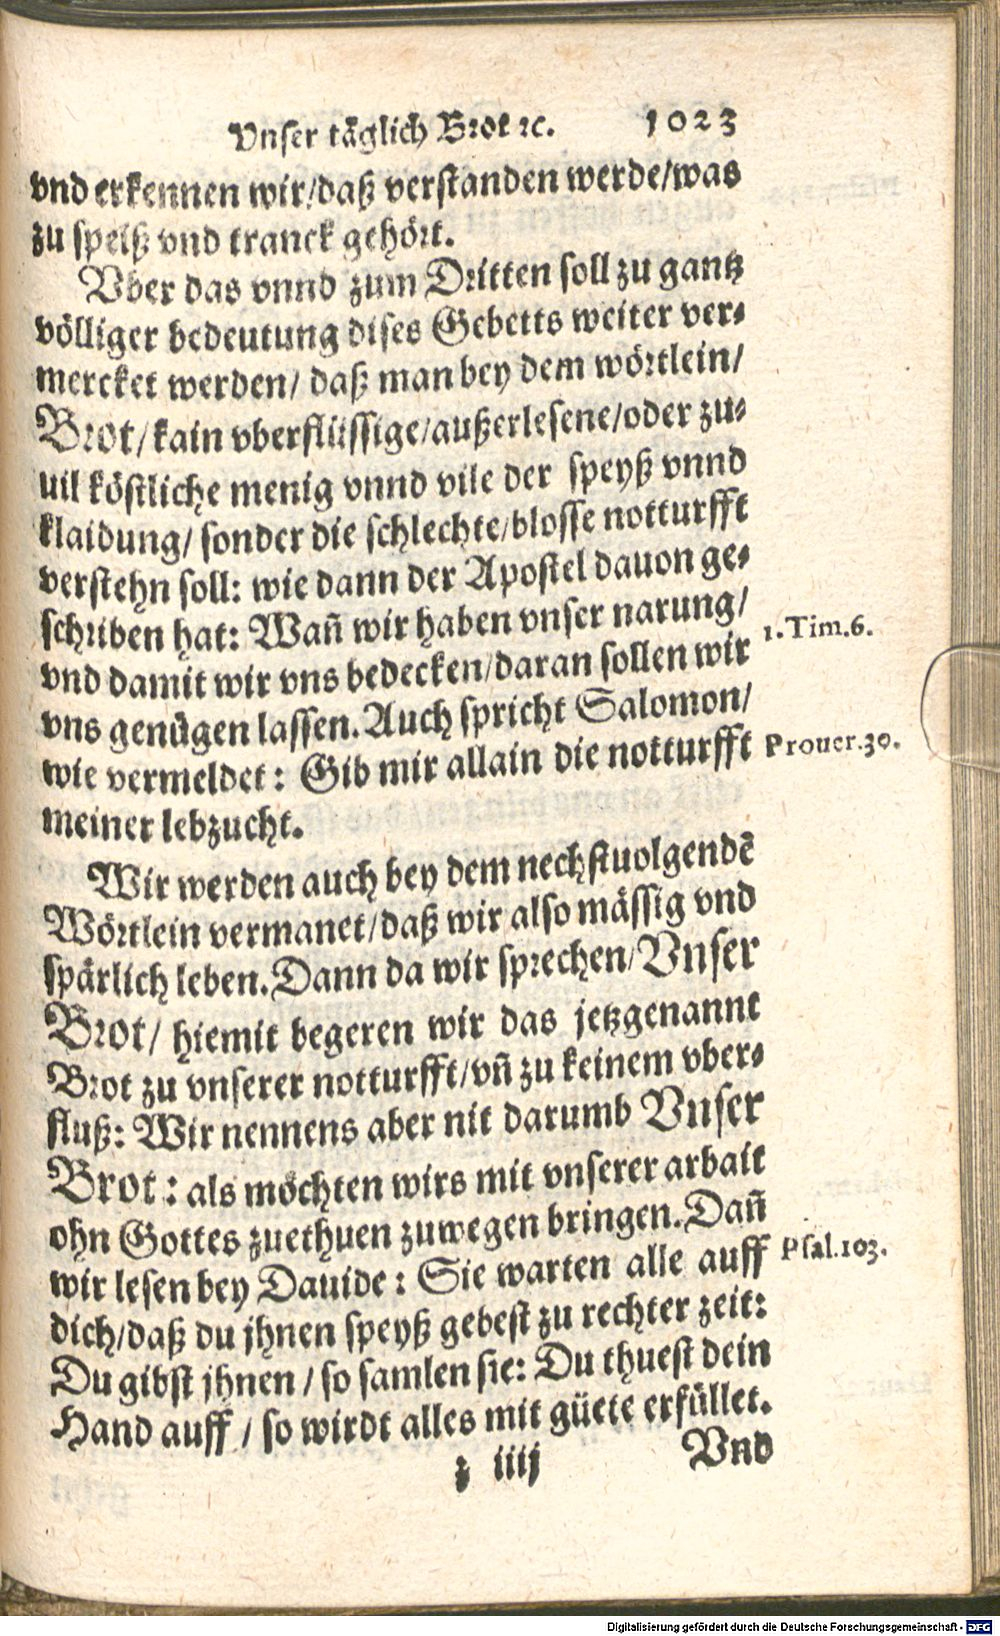 Vnser täglich Brot ꝛc. 1023
vnd erkennen wir/daß verstanden werde/was
zu speiß vnd tranck gehört.
Vber das vnnd zum Dritten soll zu gantz
völliger bedeutung dises Gebetts weiter ver-
mercket werden/ daß man bey dem wörtlein/
Brot/kain vberflüssige/außerlesene/oder zu-
uil köstliche menig vnnd vile der speyß vnnd
klaidung/ sonder die schlechte/blosse notturfft
verstehn soll: wie dann der Apostel dauon ge-
schriben hat: Wañ wir haben vnser narung/
1.Tim.6.
vnd damit wir vns bedecken/daran sollen wir
vns genügen lassen.Auch spricht Salomon/
wie vermeldet: Gib mir allain die notturfft
Prouer.30.
meiner lebzucht.
Wir werden auch bey dem nechstuolgendẽ
Wörtlein vermanet/daß wir also mässig vnd
spärlich leben.Dann da wir sprechen/Vnser
Brot/ hiemit begeren wir das jetzgenannt
Brot zu vnserer notturfft/vñ zu keinem vber-
fluß: Wir nennens aber nit darumb Vnser
Brot: als möchten wirs mit vnserer arbait
ohn Gottes zuethuen zuwegen bringen.Dañ
wir lesen bey Dauide: Sie warten alle auff
Psal.103.
dich/daß du jhnen speyß gebest zu rechter zeit:
Du gibst jhnen/so samlen sie: Du thuest dein
Hand auff/so wirdt alles mit güete erfüllet.
z iiij Vnd
Digitalisierung gefördert durch die Deutsche Forschungsgemeinschaft - DFG